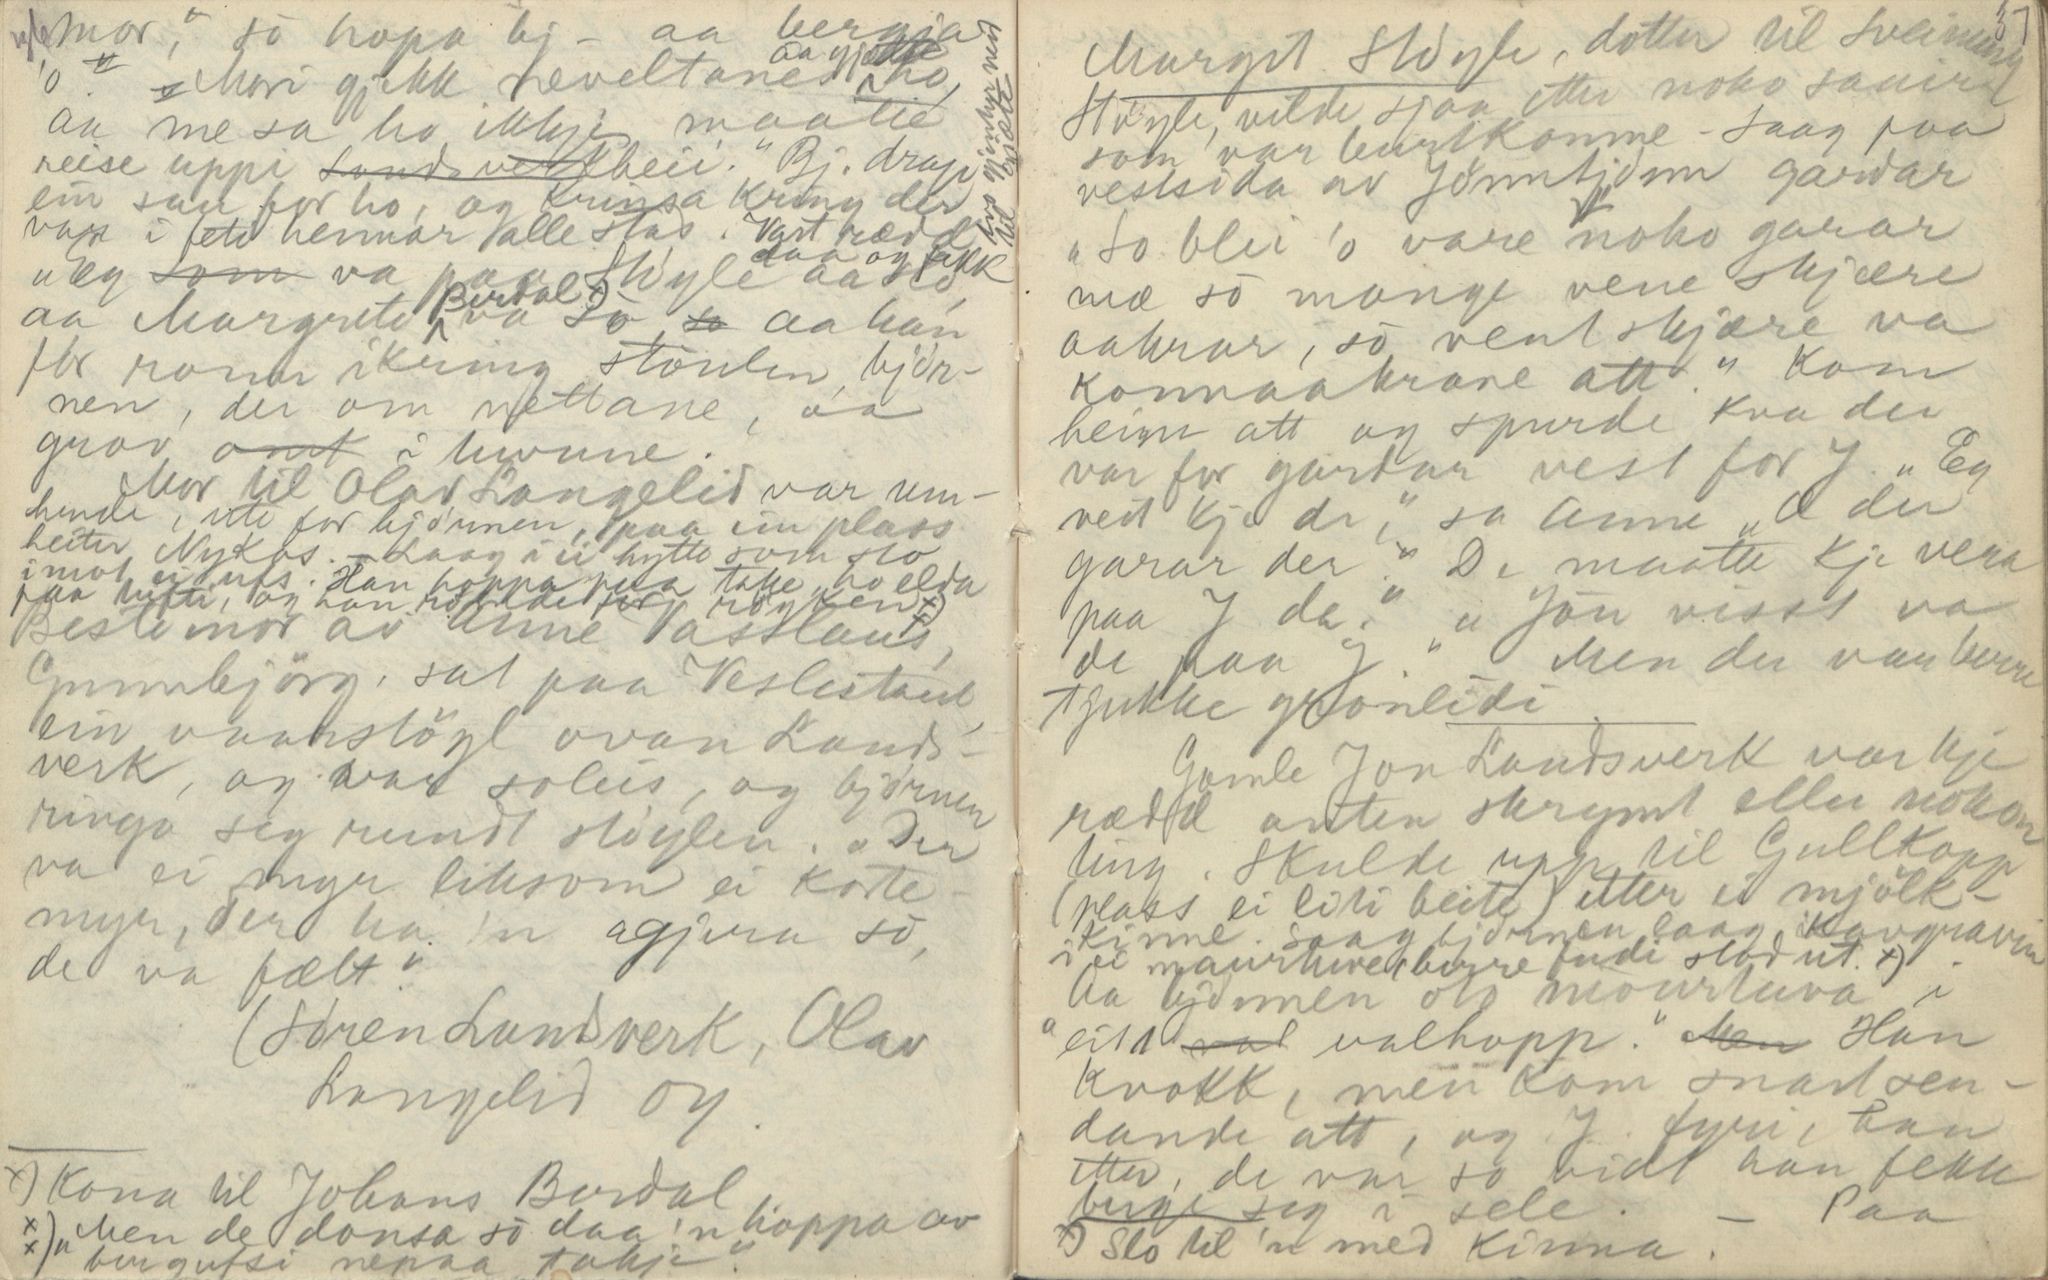 mor," sö hopa bj - aa berga
'o." "Mori gjekk neveltane aa gjætte ho,
aa me sa ho ikkje maatte
reise uppi Landsverkheii." Bj. drap
ein sau for ho, og krinsa kring der
var i fete hennar alle stas. Vart rædd daa og fekk
hos gjentyn ned til gjæte
"Eg som va paa Stöyle aa slo,
aa Margrete Berdal x) va so so aa han
för ronn ikring stöulen, bjön-
nen, der om nettane, aa
grov omt i tuvune."
Mor til Olav Langelid var um-
hende, ute for bjönnen, paa ein plass
heiter Nykös. - Laag i ei hytte som sto
imot ei ufs. Han hoppa paa take, ho elda
paa hytti, og han rædde for röyken xx)
Bestemor av Anne Vasstaul,
Gunnbjörg, sat paa Veslestaul,
ein vaarstöyl ovan Lands-
verk, og var soleis, og bjönnen
ringa seg rundt stöylen. "Der
va ei myr liksom ei körte-
myr, der ha 'n agjera sö,
de va fælt."
(Sören Landsverk, Olav
Langelid og
x) Kona til Johans Berdal
xx) "Men de dansa sö daa 'n hoppa av
bergufsi nepaa takje."
37
Margit Stöyle, dotter til Sveinung
Stöyle, vilde sjaa etter noko sauir
som var burtkomne - saag paa
vestsida av Jönntjönn gardar
"So blei 'o vare noko garar
mæ sö mange vene skjære
aakrar, sö vent skjære va
konnaakrane att." Kom
heim att og spurde kva der
var for gardar vest for J. "Eg
veit kje de," sa Anne "æ der
garar der?" "De maatte kje vera
paa J da." "Jön visst va
de paa J." Men der var berre
tjukke grönlidi
Gamle Jon Landsverk var kje
rædd anten skrymt eller nokon
ting. Skulde upp til Gullkopp
(plass ei liti beite) etter ei mjölk-
kinne. Saag bjönnen laag ikavgravin
i ei maurtuve (berre hudi stod ut. x)
Aa bjönnen ov maurtuva i
"eitt val valhopp." Men Han
kvakk, men kom snart sen-
dande att, og J. fyri, han
etter, de var so vidt han fekk
berge seg i sele. - Paa
x) Slo til 'n med kinna.